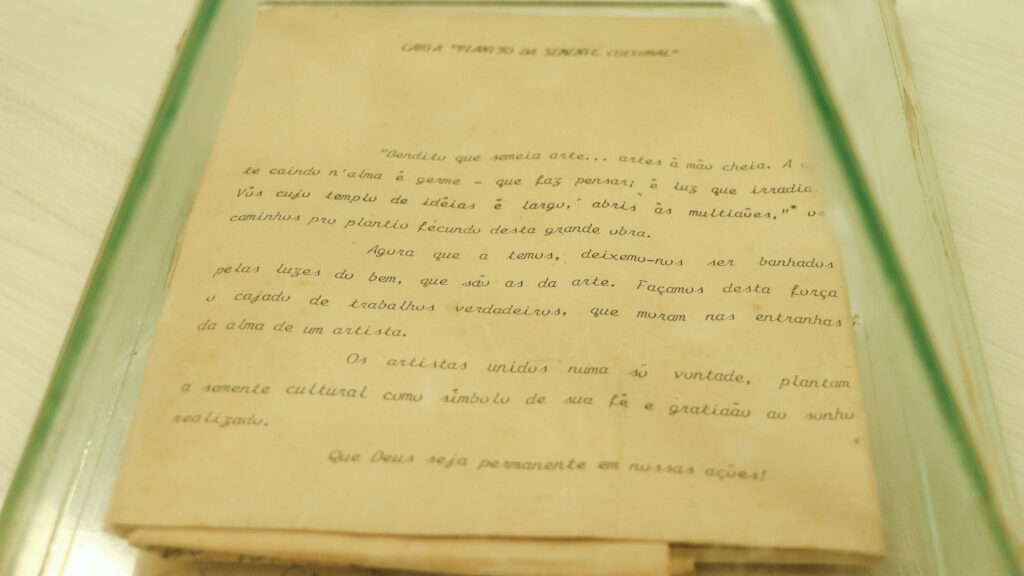 CARTA "PLANTIO DA SEMENTE CULTURAL"
"Bendito que semeia arte... artes à mão cheia. A
te caindo n'alma é germe - que faz pensar; é luz que irradia
Vós cujo templo de idéias é largo, abris às multidões,"* os
caminhos pro plantio fecundo desta grande obra.
Agora que a temos, deixemo-nos ser banhados
pelas luzes do bem, que são as da arte. Façamos desta força
o cajado de trabalhos verdadeiros, que moram nas entranhas
da alma de um artista.
Os artistas unidos numa só vontade, plantam
a semente cultural como símbolo de sua fé e gratidão ao sonho
realizado.
Que Deus seja permanente em nossas ações!